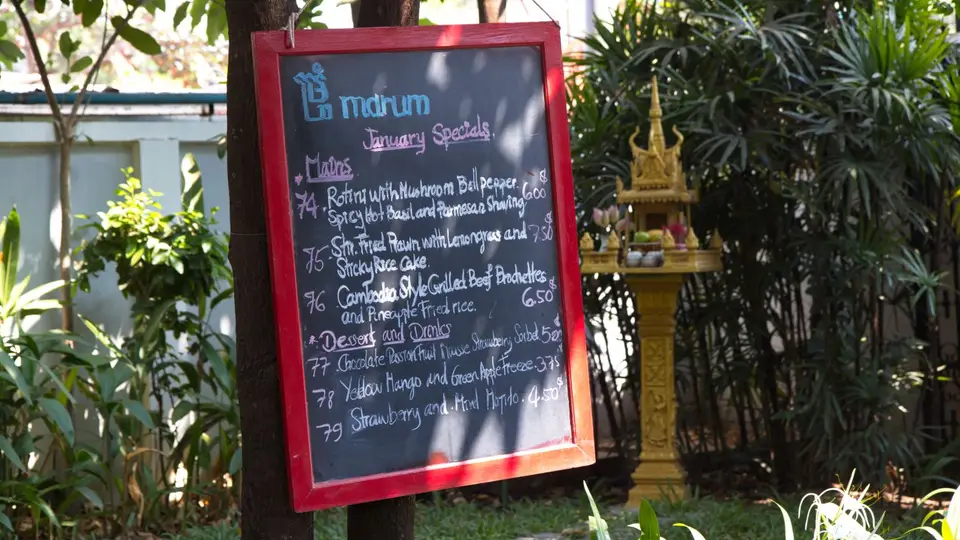 marum
January Specials.
* Mains
74 Rotini with Mushroom Bell pepper 6.00
Spicy Hot Basil and Parmesan Shaving
75 Stir Fried Prawn with Lemongrass and 7.50
Sticky Rice Cake.
76 Cambodia Style Grilled Beef Brochettes
and Pineapple Fried rice. 6.50
* Dessert and Drinks
77 Chocolate Passion Fruit Mousse Strawberry Sorbet
78 Yellow Mango and Green Apple freeze. 3.75
79 Strawberry and Mint Mojito. 4.50$